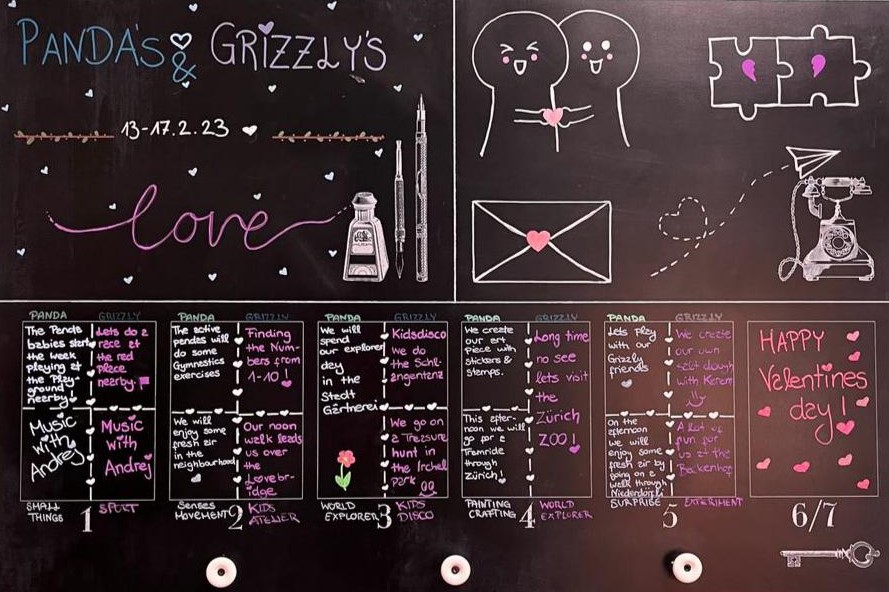 PANDA'S
& GRIZZLY'S
13-17.2.23
love
PANDA
The Panda
babies start
the week
playing at
the Play-
ground
nearby!
Music
with
Andrej
SMALL
THINGS
GRIZZLY
Lets do a
race at
the red
place
nearby.
Music
with
Andrej
SPORT
1
PANDA
The active
pandas will
do some
Gymnastics
exercises
We will
enjoy some
fresh air
in the
neighbourhood
Senses
MOVEMENT
GRIZZLY
Finding
the Num-
bers from
1-10!
Our noon
walk leads
us over
the
Lovebr-
idge
KIDS
ATELIER
2
PANDA
We will
spend
our explorer
day
in the
Stadt
Gärtnerei
WORLD
EXPLORER
GRIZZLY
Kidsdisco
We do
the Schl-
angentanz
We go on
a Treasure
hunt in
the Irchel
park
KIDS
DISCO
3
PANDA
We create
our art
piece with
stickers &
stamps.
This after-
noon we will
go for a
Tramride
through
Zürich!
PAINTING
CRAFTING
GRIZZLY
Long time
no see
lets visit
the
Zürich
ZOO!
WORLD
EXPLORER
4
PANDA
Lets play
with our
Grizzly
friends
On the
afternoon
we will
enjoy some
fresh air by
going on a
walk through
Niederdorf!
SURPRISE
GRIZZLY
We create
our own
salt dough
with Kerem
A lot of
fun for
us at the
Backenhof
EXPERIMENT
5
HAPPY
Valentines
day!
6/7